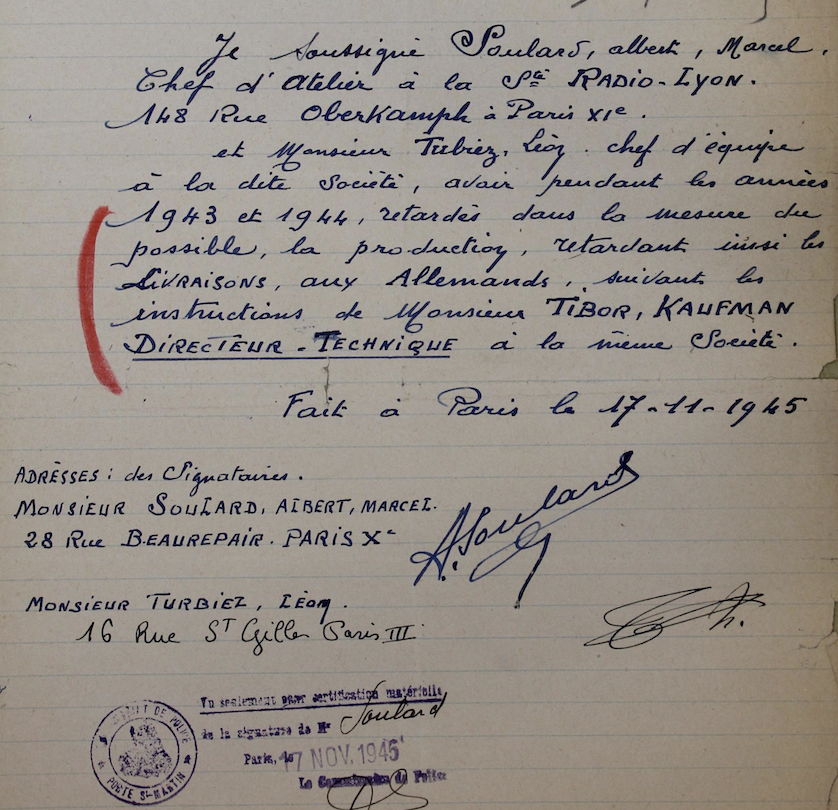 Je soussigné Soulard, albert, Marcel.
Chef d'Atelier à la Sté RADIO-LYON.
148 Rue Oberkamph à Paris XIe.
et Monsieur Tubiez, Léon. chef d'équipe
à la dite Société, avoir pendant les années
1943 et 1944, retardés dans la mesure du
possible, la production, retardant insi les
LIVRAISONS, aux Allemands, suivant les
instructions de Monsieur TIBOR, KAUFMAN
DIRECTEUR-TECHNIQUE à la même Société.
Fait à Paris le 17-11-1945
ADRÈSSES: des Signataires.
MONSIEUR SOULARD, AlBERT, MARCEL.
28 Rue BEAUREPAIR. PARIS Xe
A. Soulard
MONSIEUR TURBIEZ, LÉON.
16 Rue ST Gilles Paris III
Vu seulement pour certification matérielle
de la signature de Mr Soulard
Paris, le 17 NOV. 1945
Le Commissaire de Police
DE POLICE
PORTE ST-MARTIN